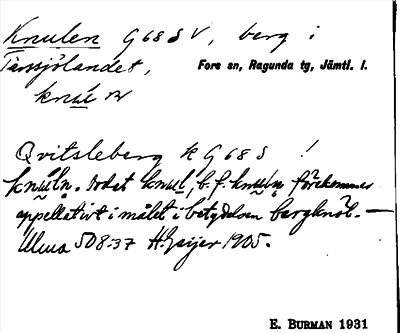 Knulen G 68 S V, berg i
Tärsjölandet,
Fors sn, Ragunda tg, Jämtl. l.
knul
Qvitsleberg k G 68 S !
knuln. Ordet knul, b. f. knuln förekommer
appellativt i målet i betydelsen bergknöl. —
Ulma 508:37 H. Geijer 1905.
E. BURMAN 1931